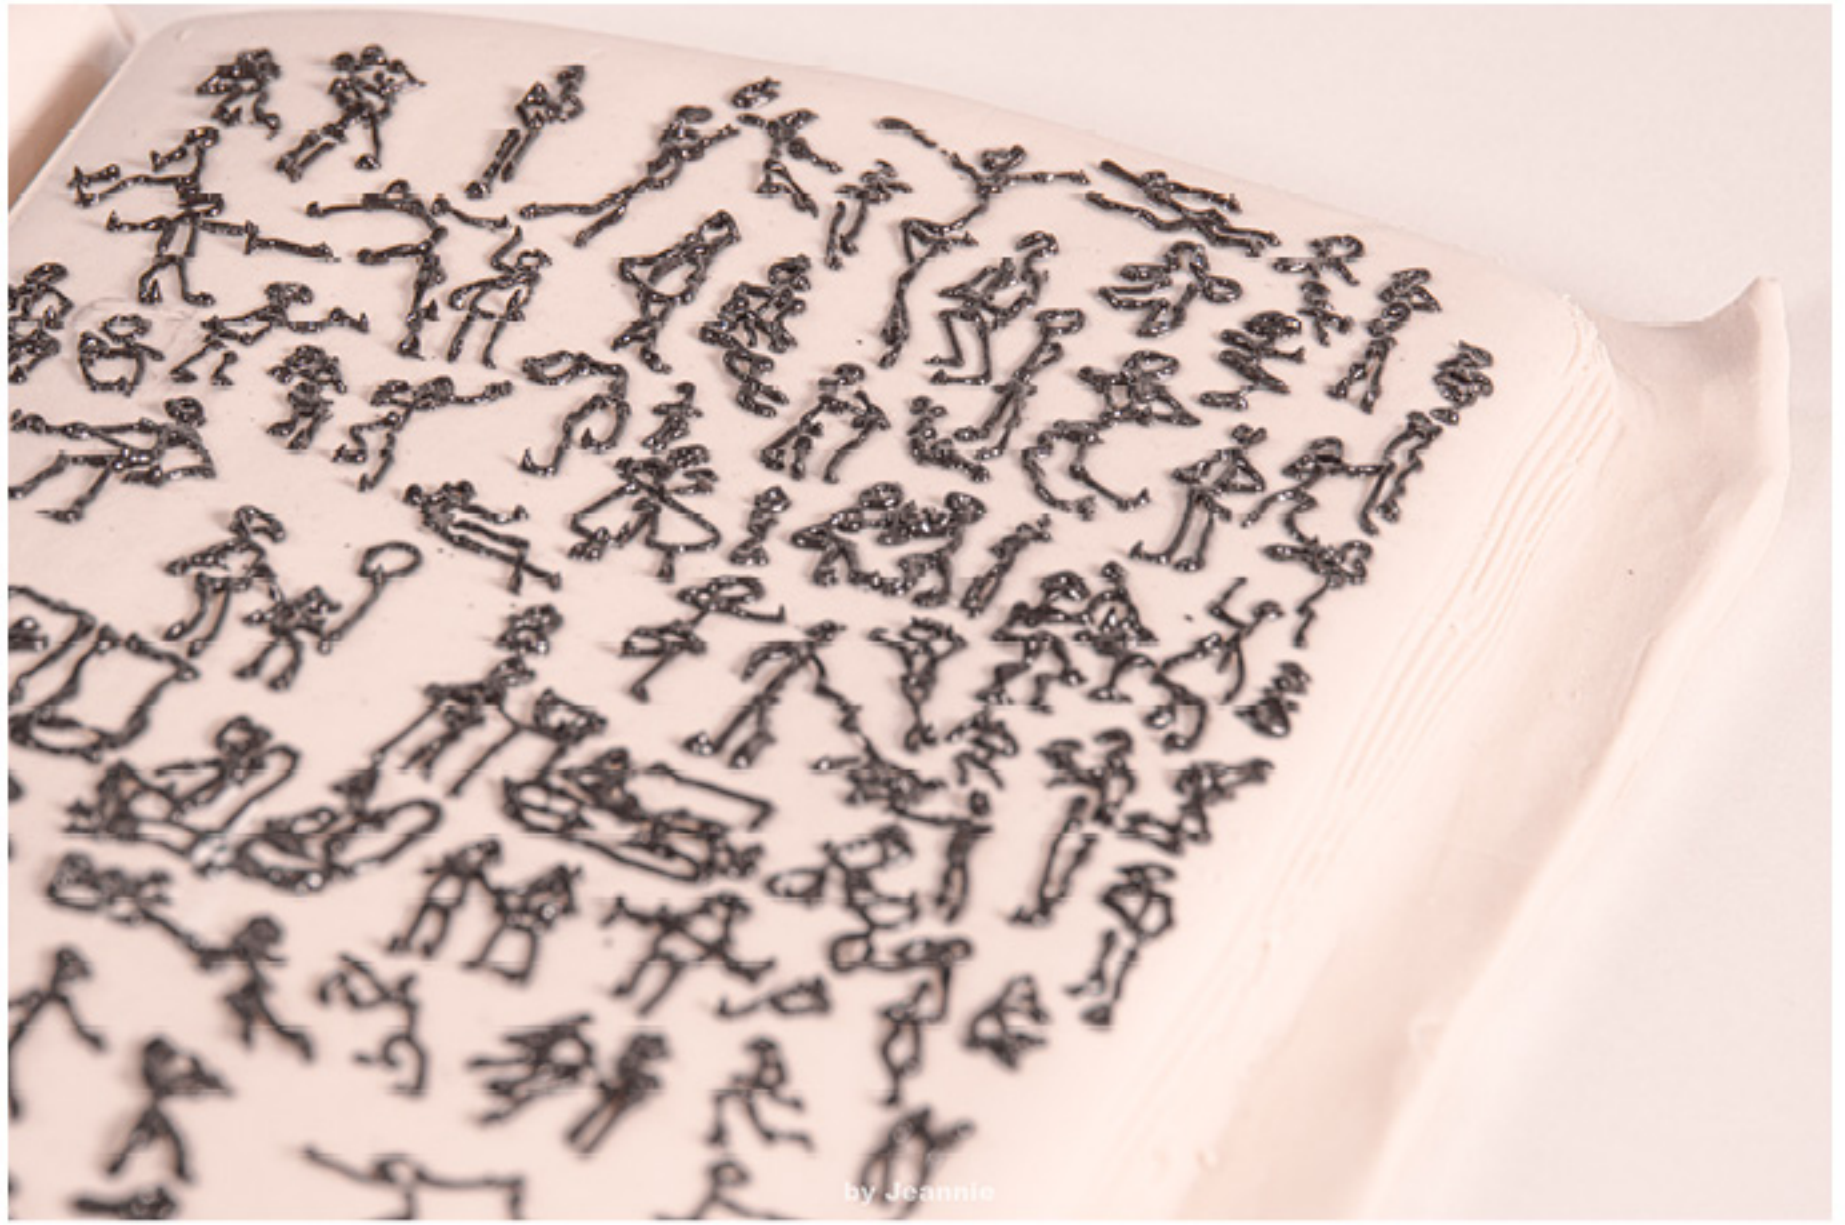 by Jeannie